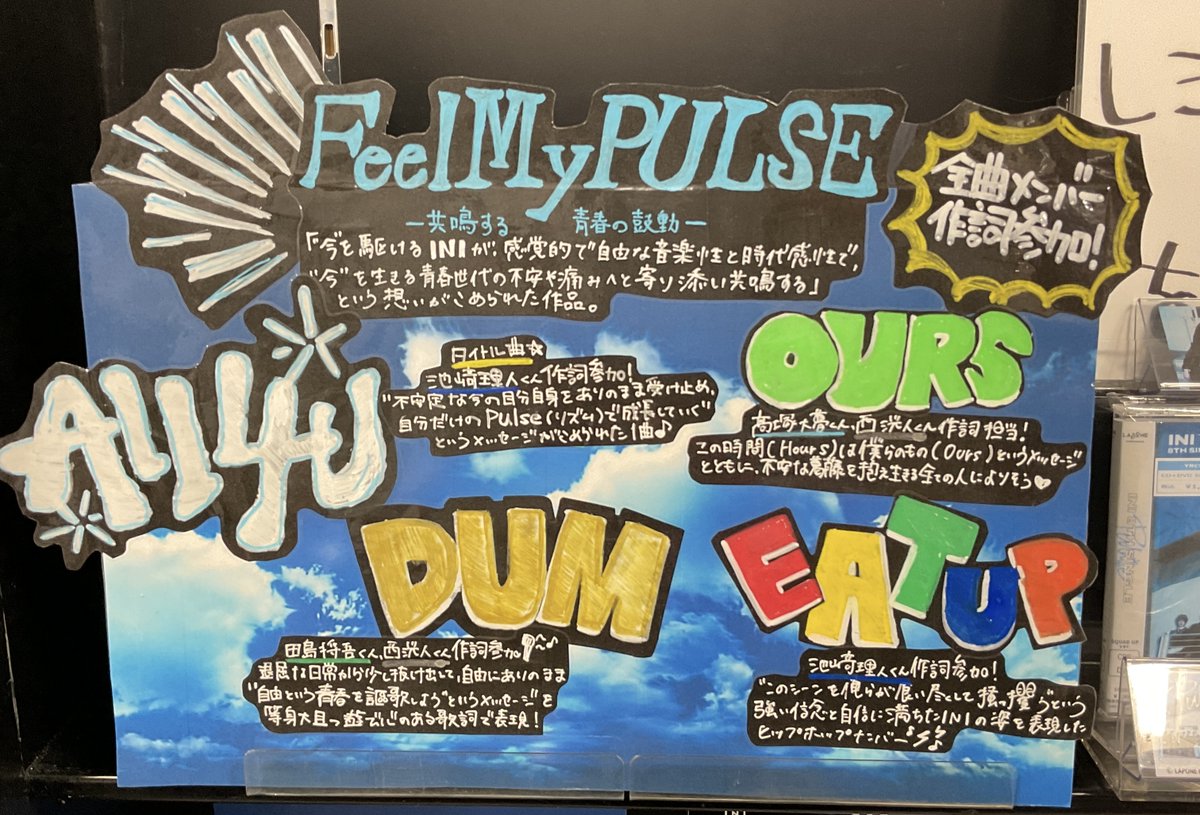 Feel My PULSE
全曲メンバー
作詞参加!
―共鳴する 青春の鼓動―
「今を駆けるINIが、感覚的で自由な音楽性と時代感性で、
"今"を生きる青春世代の不安や痛みへと寄り添い共鳴する」
という想いがこめられた作品。
All 4 U
タイトル曲☆
池﨑理人くん作詞参加!
"不安定な今の自分自身をありのまま受け止め、
自分だけのPulse(リズム)で成長していく"
というメッセージがこめられた1曲♪
OURS
髙塚大夢くん、西洸人くん作詞担当!
この時間(Hours)は僕らのもの(Ours)というメッセージ
とともに、不安な葛藤を抱え生きる全ての人によりそう♡
DUM
田島将吾くん、西洸人くん作詞参加
退屈な日常から少し抜け出して、自由にありのまま
"自由という青春を謳歌しよう"というメッセージを
等身大且つ遊び心のある歌詞で表現!
EAT UP
池﨑理人くん作詞参加!
"このシーンを俺らが食い尽くして掻っ攫う"という
強い信念と自信に満ちたINIの姿を表現した
ヒップホップナンバー♪
INI
8TH SI
INI